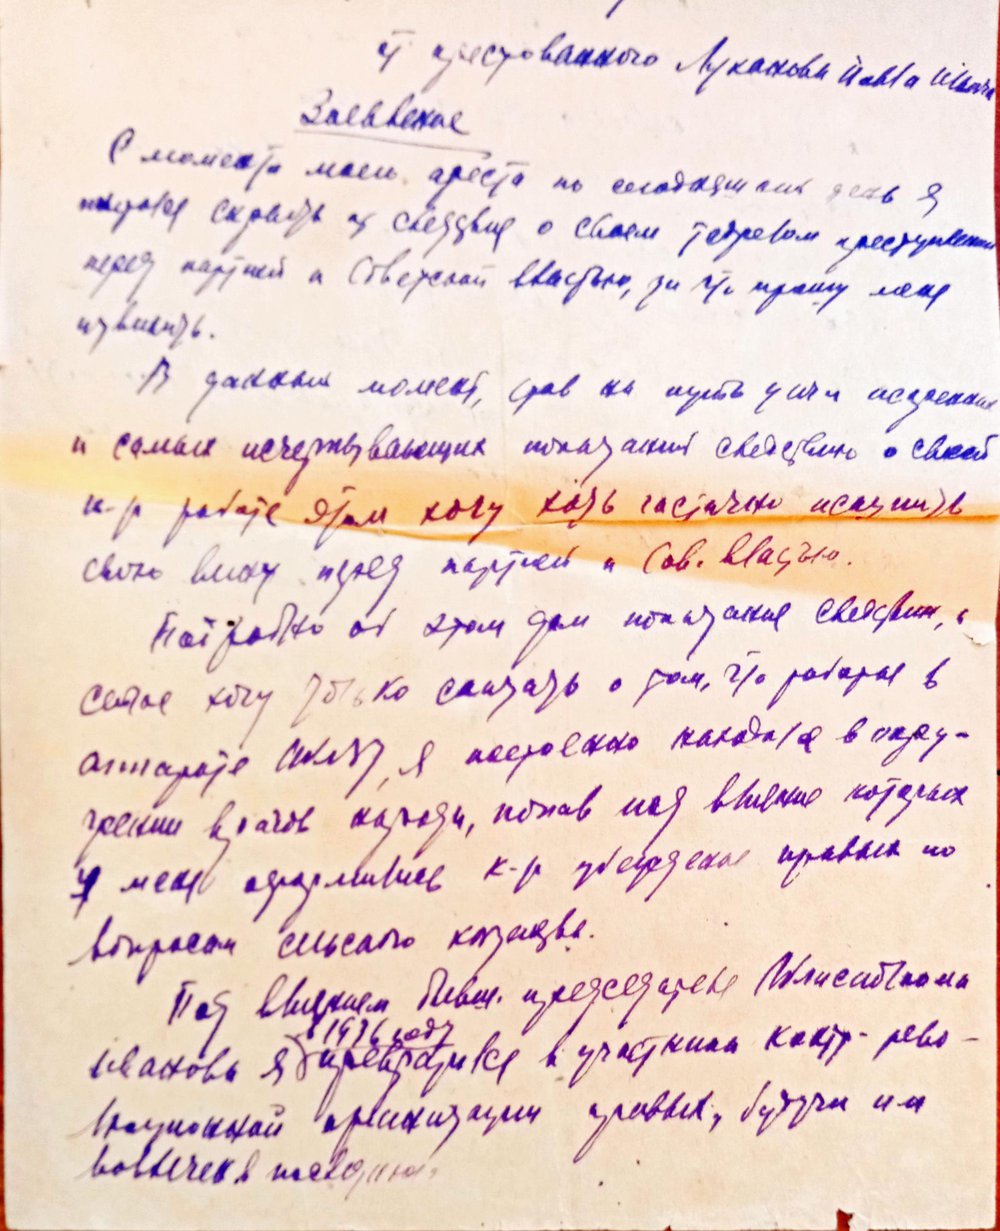 от арестованного Луканова Павла
Заявление
С момента моего ареста по сегодняшний день я
пытался скрыть от следствия о своем преступлении
перед партией и Советской властью, за что прошу меня
извинить.
В данный момент, став на путь дачи искренних
и самых исчерпывающих показаний следствию о своей
к-р работе этим хочу хоть частично искупить
свою вину перед партией и Сов. властью.
Подробно об этом дам показание следствию, а
сейчас хочу только сказать о том, что работая в
аппарате я постоянно находился в окру-
жении врагов народа, попав под влияние которых
у меня оформились к-р убеждение правых по
вопросам сельского хозяйства.
Под влиянием бывш. председателя Облисполкома
в 1936 году
Иванова я превратился в участника контр-рево-
люционной организации правых, будучи им
вовлечен в последнюю.